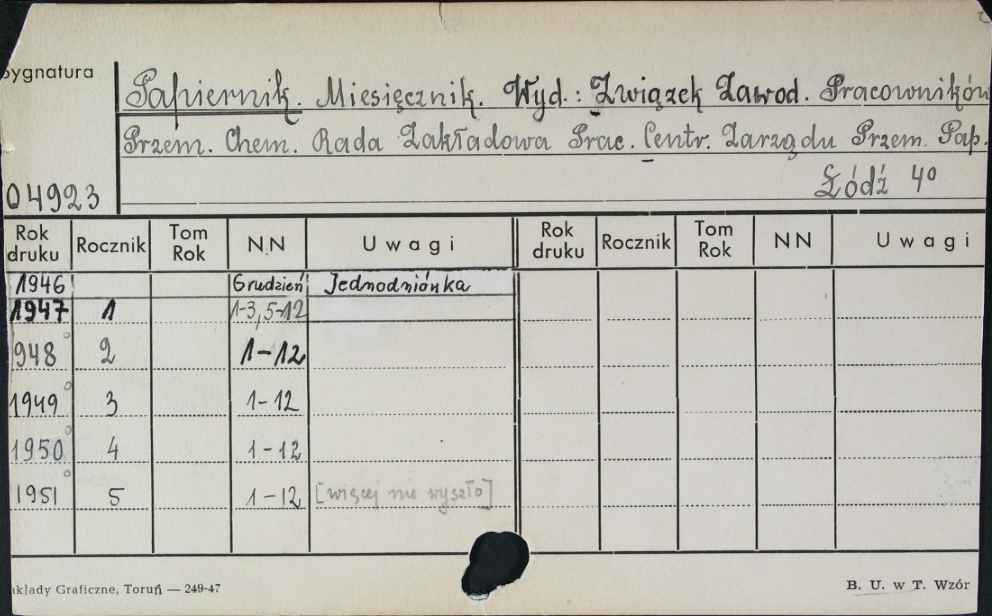 Sygnatura
Papiernik. Miesięcznik. Wyd.: Związek Zawod. Pracowników
Przem. Chem. Rada Zakładowa Prac. Centr. Zarządu Przem. Pap.
04923 Łódź 4º
Rok druku Rocznik Tom Rok N.N Uwagi Rok druku Rocznik Tom Rok NN Uwagi
1946 Grudzień Jednodniówka
1947 1 1-3, 5-12
948 2 1-12
1949 3 1-12
1950 4 1-12
1951 5 1-12 [więcej nie wyszło]
akłady Graficzne, Toruń — 249-47 B. U. w T. Wzór